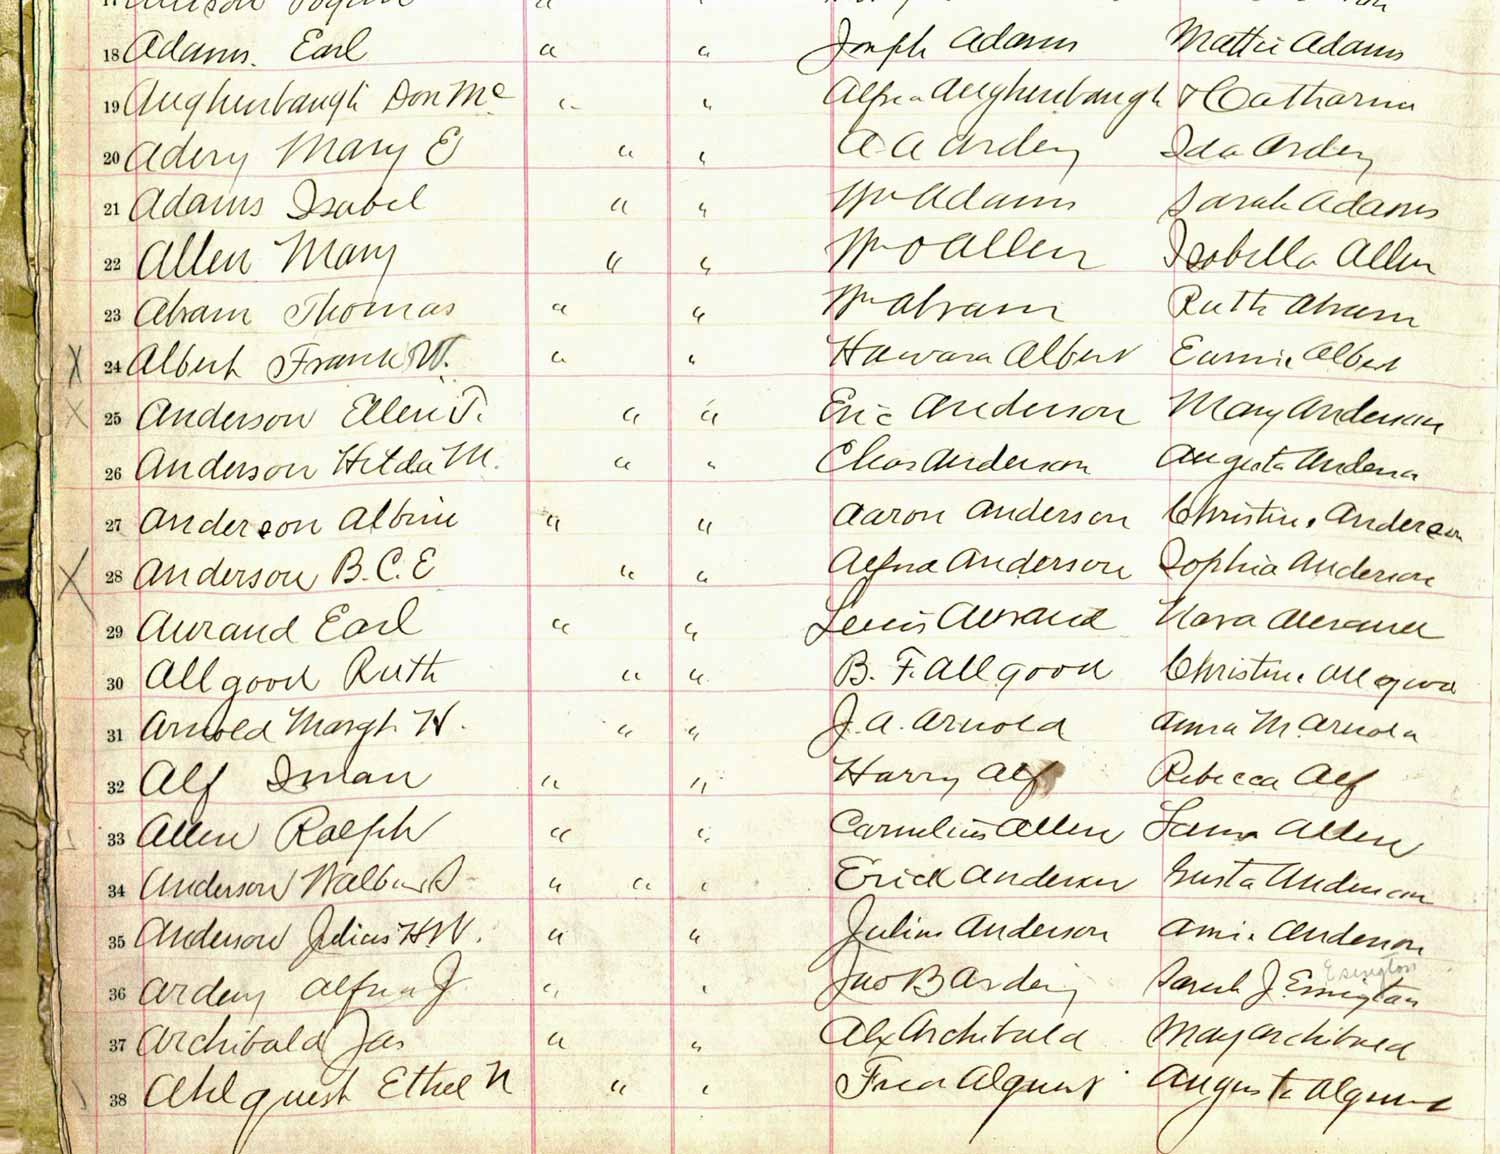 18 Adams. Earl " " Joseph Adams Mattie Adams
19 Aughenbaugh Don Mc " " Alfred Aughenbaugh & Catharine
20 Adery Mary E " " A A Ardery Ida Ardery
21 Adams Isabel " " Wm Adams Sarah Adams
22 Allen Mary " " Wm O Allen Isabella Allen
23 Abram Thomas " " Wm Abram Ruth Abram
X 24 Albert Frank W. " " Howard Albert Albert
X 25 Anderson Ellen T. " " Eric Anderson Mary Anderson
26 Anderson Hilda M. " " Chas Anderson Augusta Anderson
27 Anderson Albin " " Aaron Anderson Christine Anderson
X 28 Anderson B. C. E " " Anderson Sophia Anderson
29 Aurand Earl " " Lewis Aurand Nora
30 Allgood Ruth " " B. F. Allgood Christine Allgood
31 Arnold Margt H. " " J. A. Arnold Anna M. Arnold
32 Alf Iman " " Harry Alf Rebecca Alf
33 Allen Ralph " " Cornelius Allen Allen
34 Anderson S " " " Erick Anderson Gusta Anderson
35 Anderson Julius H. W. " " Julius Anderson Anderson
Esington
36 Ardery Alfred J " " Jno B Sarah J.
37 Archibald Jas " " Alex Archibald May Archibald
38 Ahlquist Ethel N " " Fred Alquist Augusta Alquist